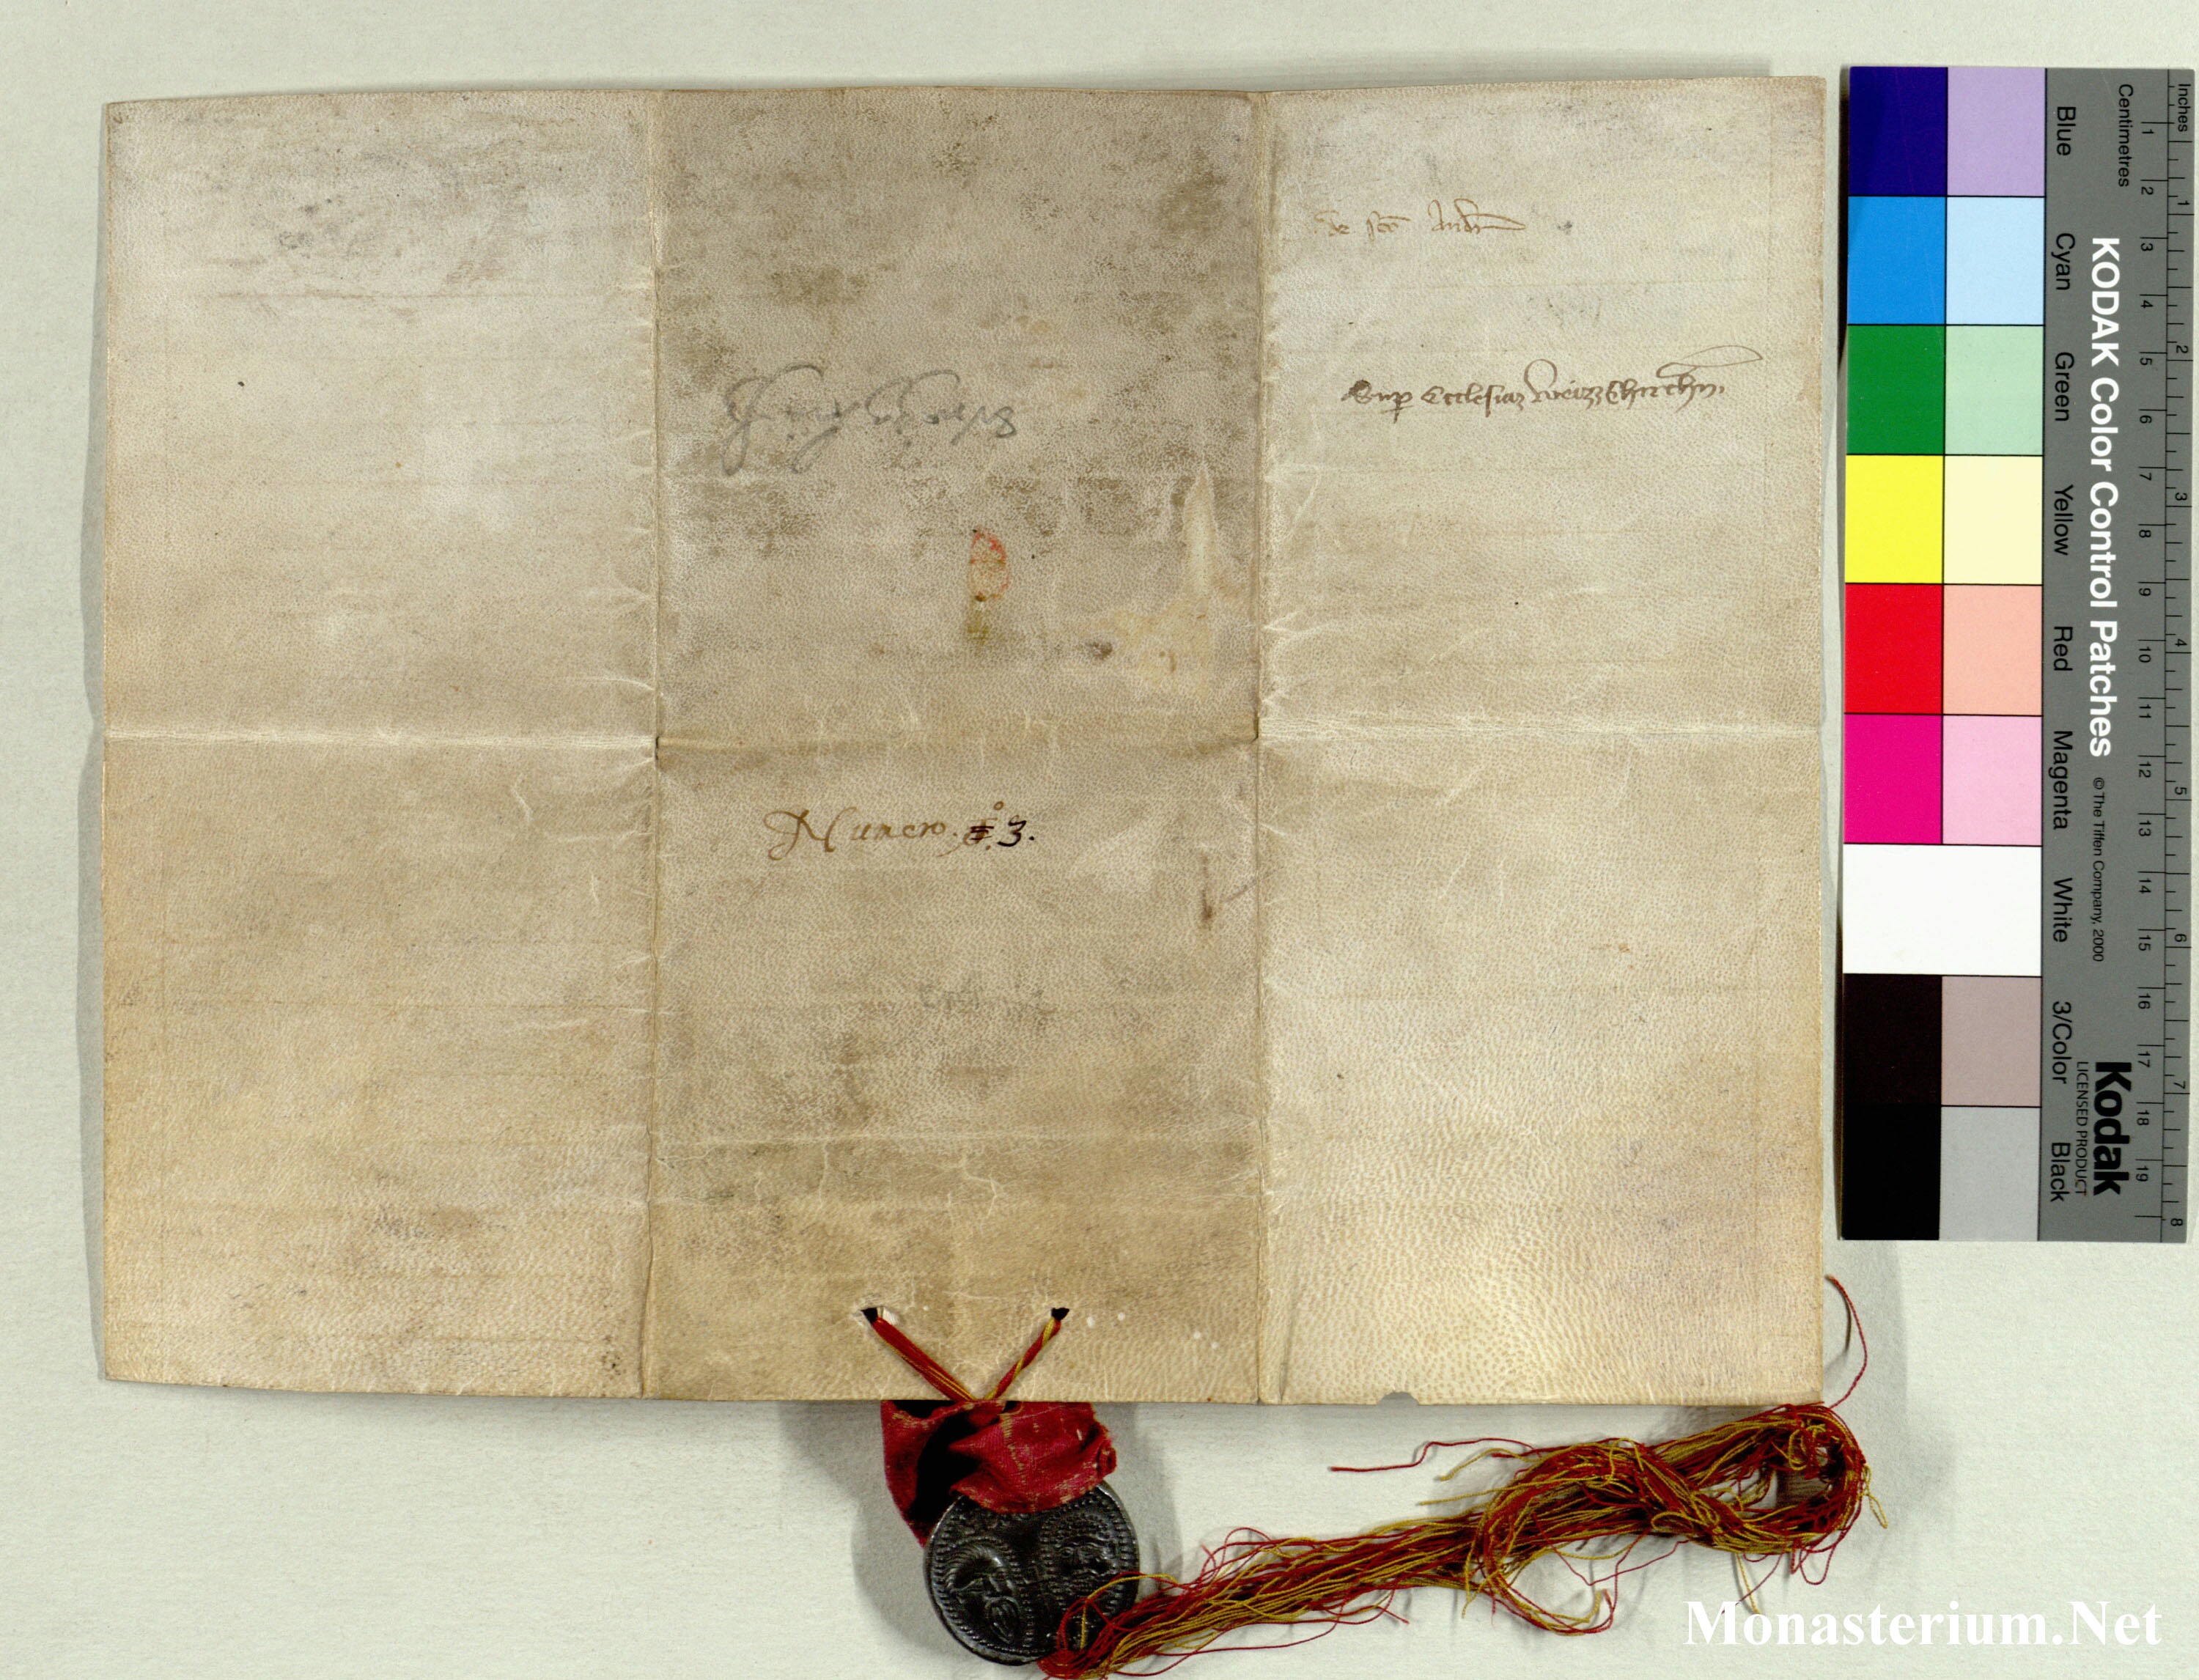 de sco Andr
Sup Ecclesiaz Weizzchirchn.
Numero. 3.
KODAK Color Control Patches
© The Tiffen Company, 2000
Kodak
LICENSED PRODUCT
Blue Cyan Green Yellow Red Magenta White 3/Color Black
Centimetres
1 2 3 4 5 6 7 8 9 10 11 12 13 14 15 16 17 18 19
Inches
1 2 3 4 5 6 7 8
Monasterium.Net